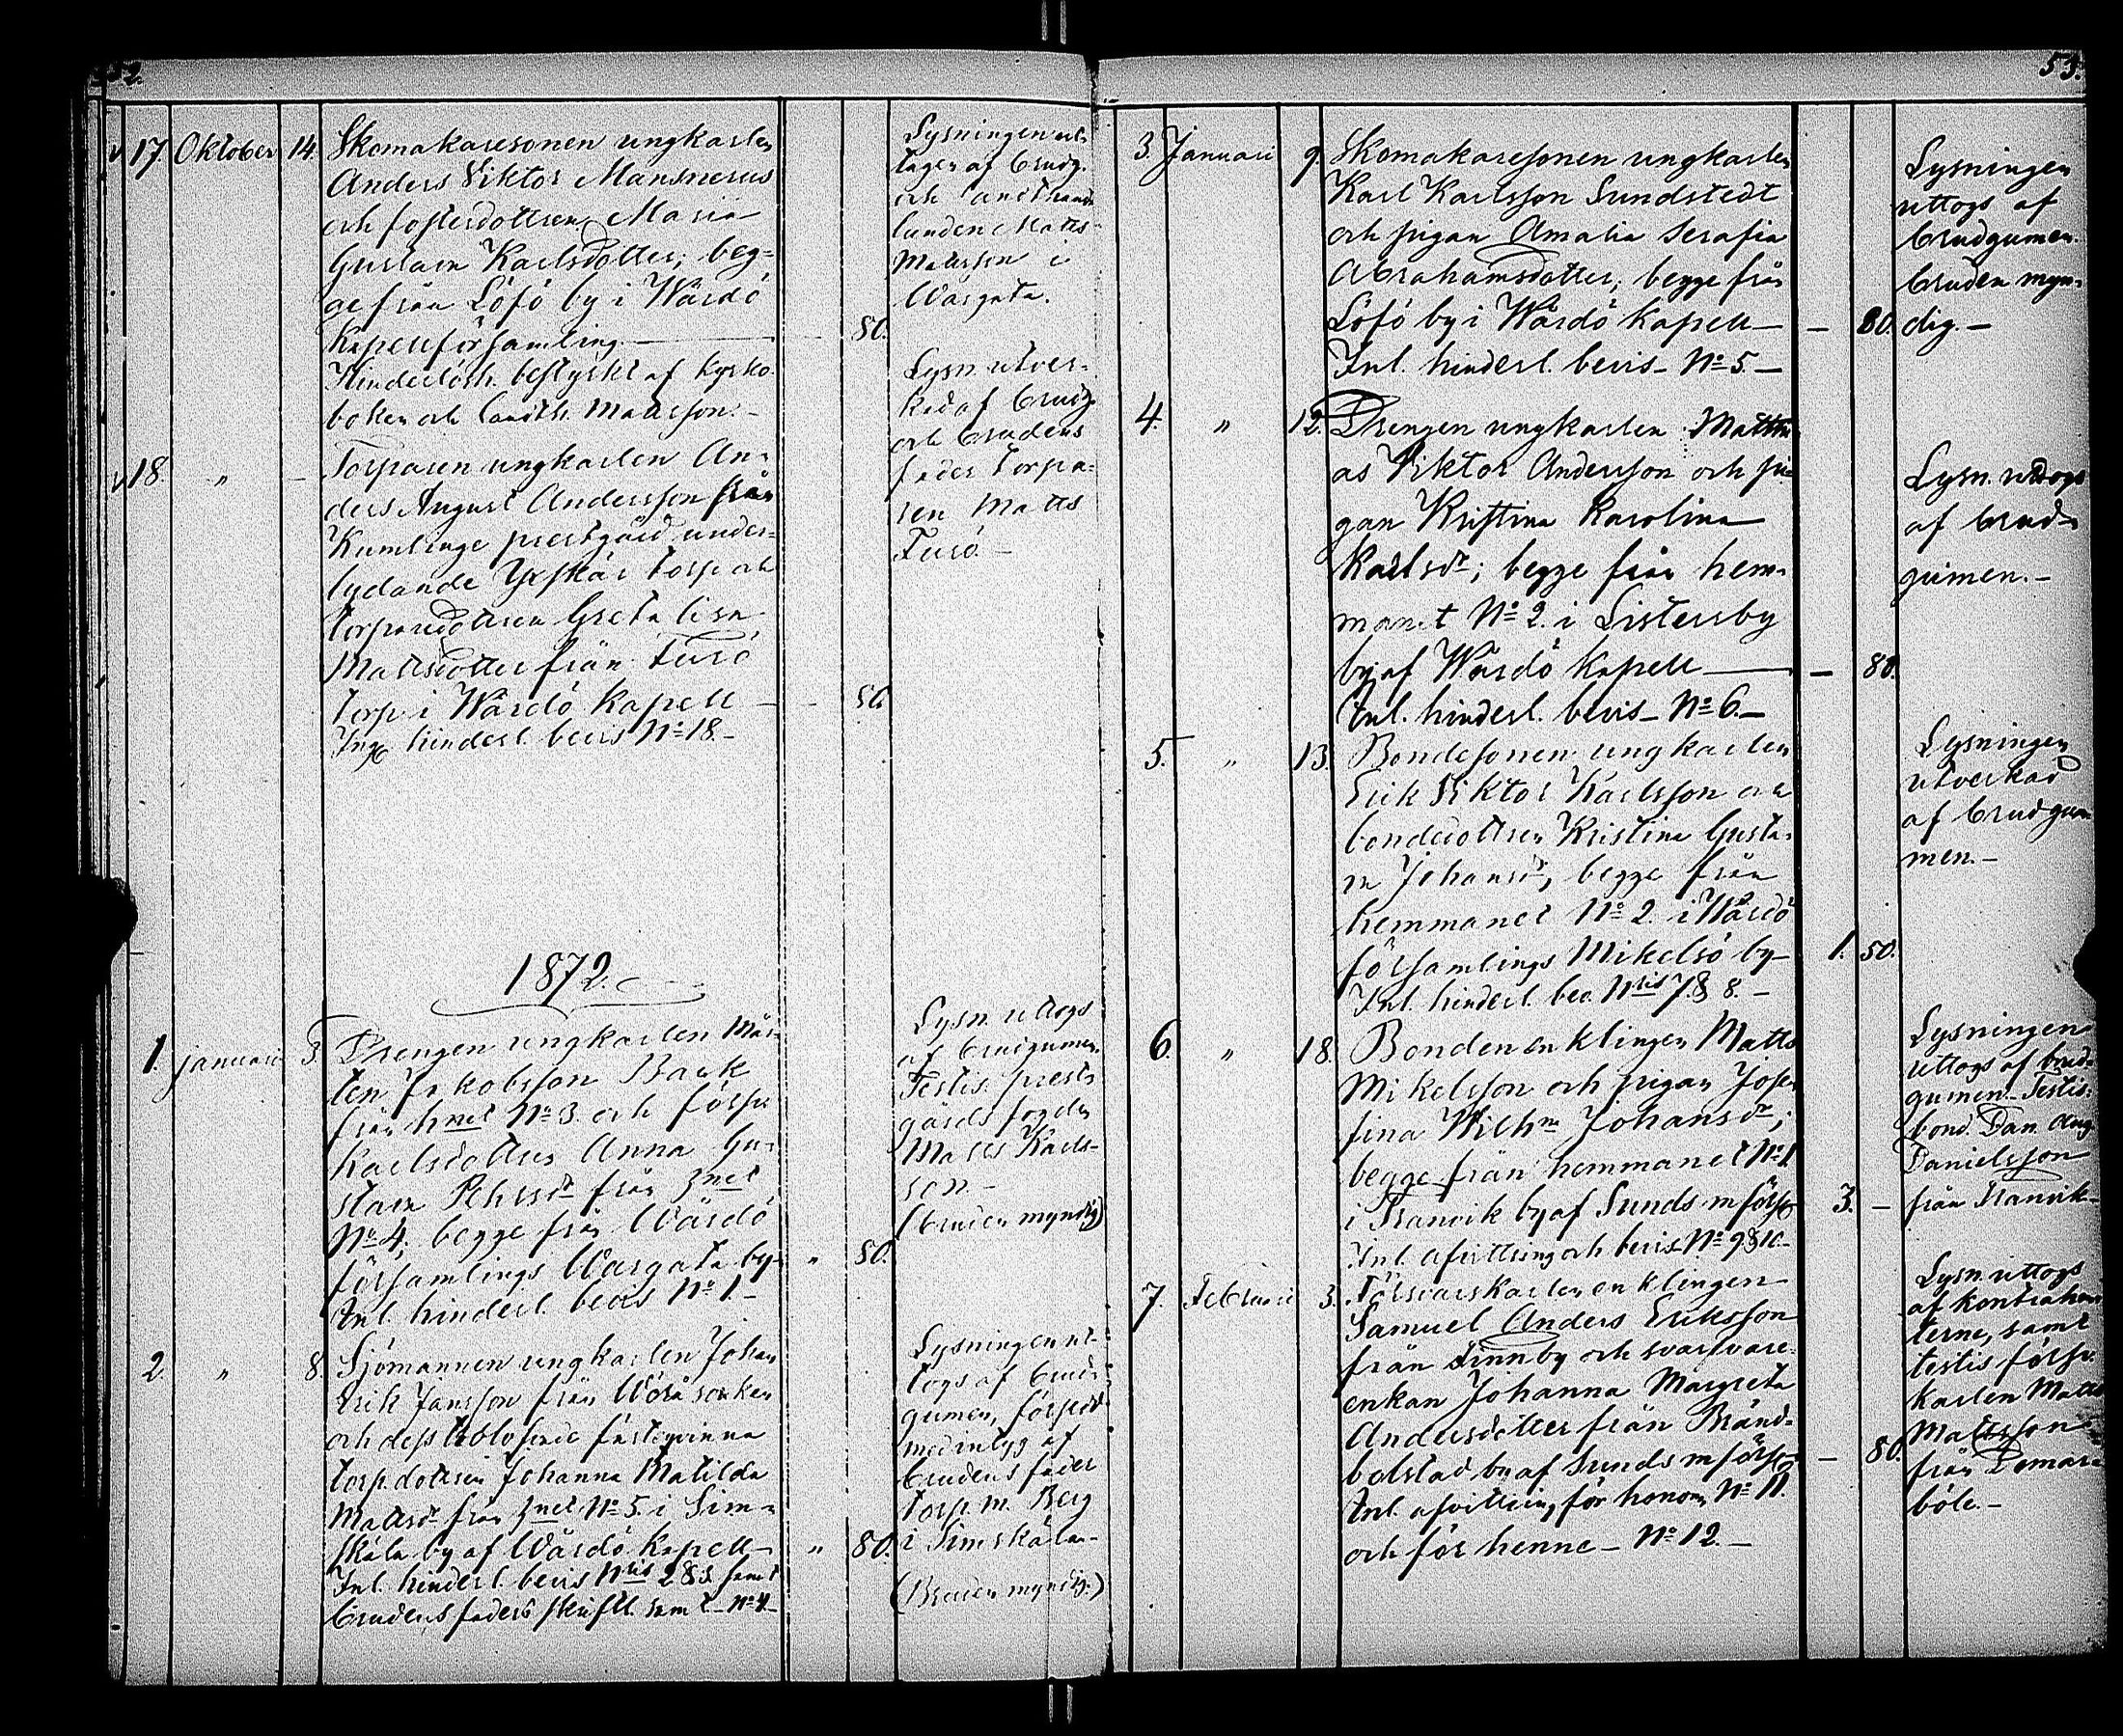 52.
17. Oktober 14. Skomakaresonen ungkarlen
Anders Viktor Mansnerus
och fosterdottren Maria
Gustava Karlsdotter; beg-
ge från Löfö by i Wårdö
Kapellförsamling.
50.
Hinderlösh. bestyrkt af kyrko
boken och landth. Mattsson.-
Lysningen ut-
tagen af brudg.
och landthand-
landen Matts
Mattsson i
Wargata.
18. " - Torparen ungkarlen An-
ders August Andersson från
Kumlinge prestgård under-
lydande Yxskär torp och
torparedottren Greta Lisa
Mattsdotter från Turö
torp i Wårdö kapell -
56
Ing. hinderl. bevis No 18.-
Lysn. utver-
kad af brudg.
och brudens
fader torpa-
ren Matts
Turö.-
1872.
1. januari 3 Drengen ungkarlen Mår-
ten Jakobsson Back
från hmet No 3. och
Karlsdotter Anna Gu-
stava Pehrsdr från
No 4; begge från Wårdö
församlings Wargata by-
" 50.
Inl. hinderl. bevis No 1.-
Lysn. uttogs
af brudgumen.
Testis: prest-
gårds fogden
Matts Karls-
son.-
(bruden myndig)
2. " 8. Sjömannen ungkarlen Johan
Erik Jansson från Wörå socken
och dess trolofvade fästeqvinna
torp.dottren Johanna Matilda
Mattsdr från No 5. i Sim-
skäla by af Wårdö kapell-
" 80.
Inl. hinderl. bevis Nris 2 & 3. samt
brudens faders skriftl. samt.- No 4.-
Lysningen ut-
togs af brud-
gumen, försedd
med intyg af
brudens fader
torp. M. Berg
i Simskäla.-
(Bruden myndig.)
53.
3. Januari 9. Skomakaresonen ungkarlen
Karl Karlsson Sundstedt
och pigan Amalia Serafia
Abrahamsdotter; begge från
Löfö by i Wårdö kapell-
- 80.
Inl. hinderl. bevis- No 5.-
Lysningen
uttogs af
brudgumen.
bruden myn-
dig.-
4. " 12. Drengen ungkarlen Matthi-
as Viktor Andersson och pi-
gan Kristina Karolina
Karlsdr; begge från hem-
manet No 2. i Listersby
by af Wårdö kapell
- 80.
Inl. hinderl. bevis- No 6.-
Lysn. uttogs
af brud-
gumen.-
5. " 13. Bondesonen ungkarlen
Erik Viktor Karlsson och
bondedottren Kristina Gusta-
va Johansdr, begge från
hemmanet No 2. i Wårdö
församlings Mikelsö by-
1. 50.
Inl. hinderl. bev. Nris 7. & 8.-
Lysningen
utverkad
af brudgum-
men.-
6. " 18. Bonden enklingen Matts
Mikelsson och pigan Jose-
fina Wilhma Johansdr;
begge från hemmanet No 1
i Tranvik by af Sunds mförsg
3. -
Inl. afvittring och bevis No 9 & 10.-
Lysningen
uttogs af brud-
gumen.- Testis:
bond. Dan. Aug.
Danielsson
från Tranvik-
7. Februari 3. Försvarskarlen enklingen
Samuel Anders Eriksson
från Finnby och
enkan Johanna Margreta
Andersdotter från Bränd-
bolstad by af Sunds mförsg
- 80.
Inl. afvittring för honom No 11.
och för henne - No 12.-
Lysn. uttogs
af kontrahen-
terne, samt
testis försv.
karlen Matts
Mattsson
från Domars-
böle.-